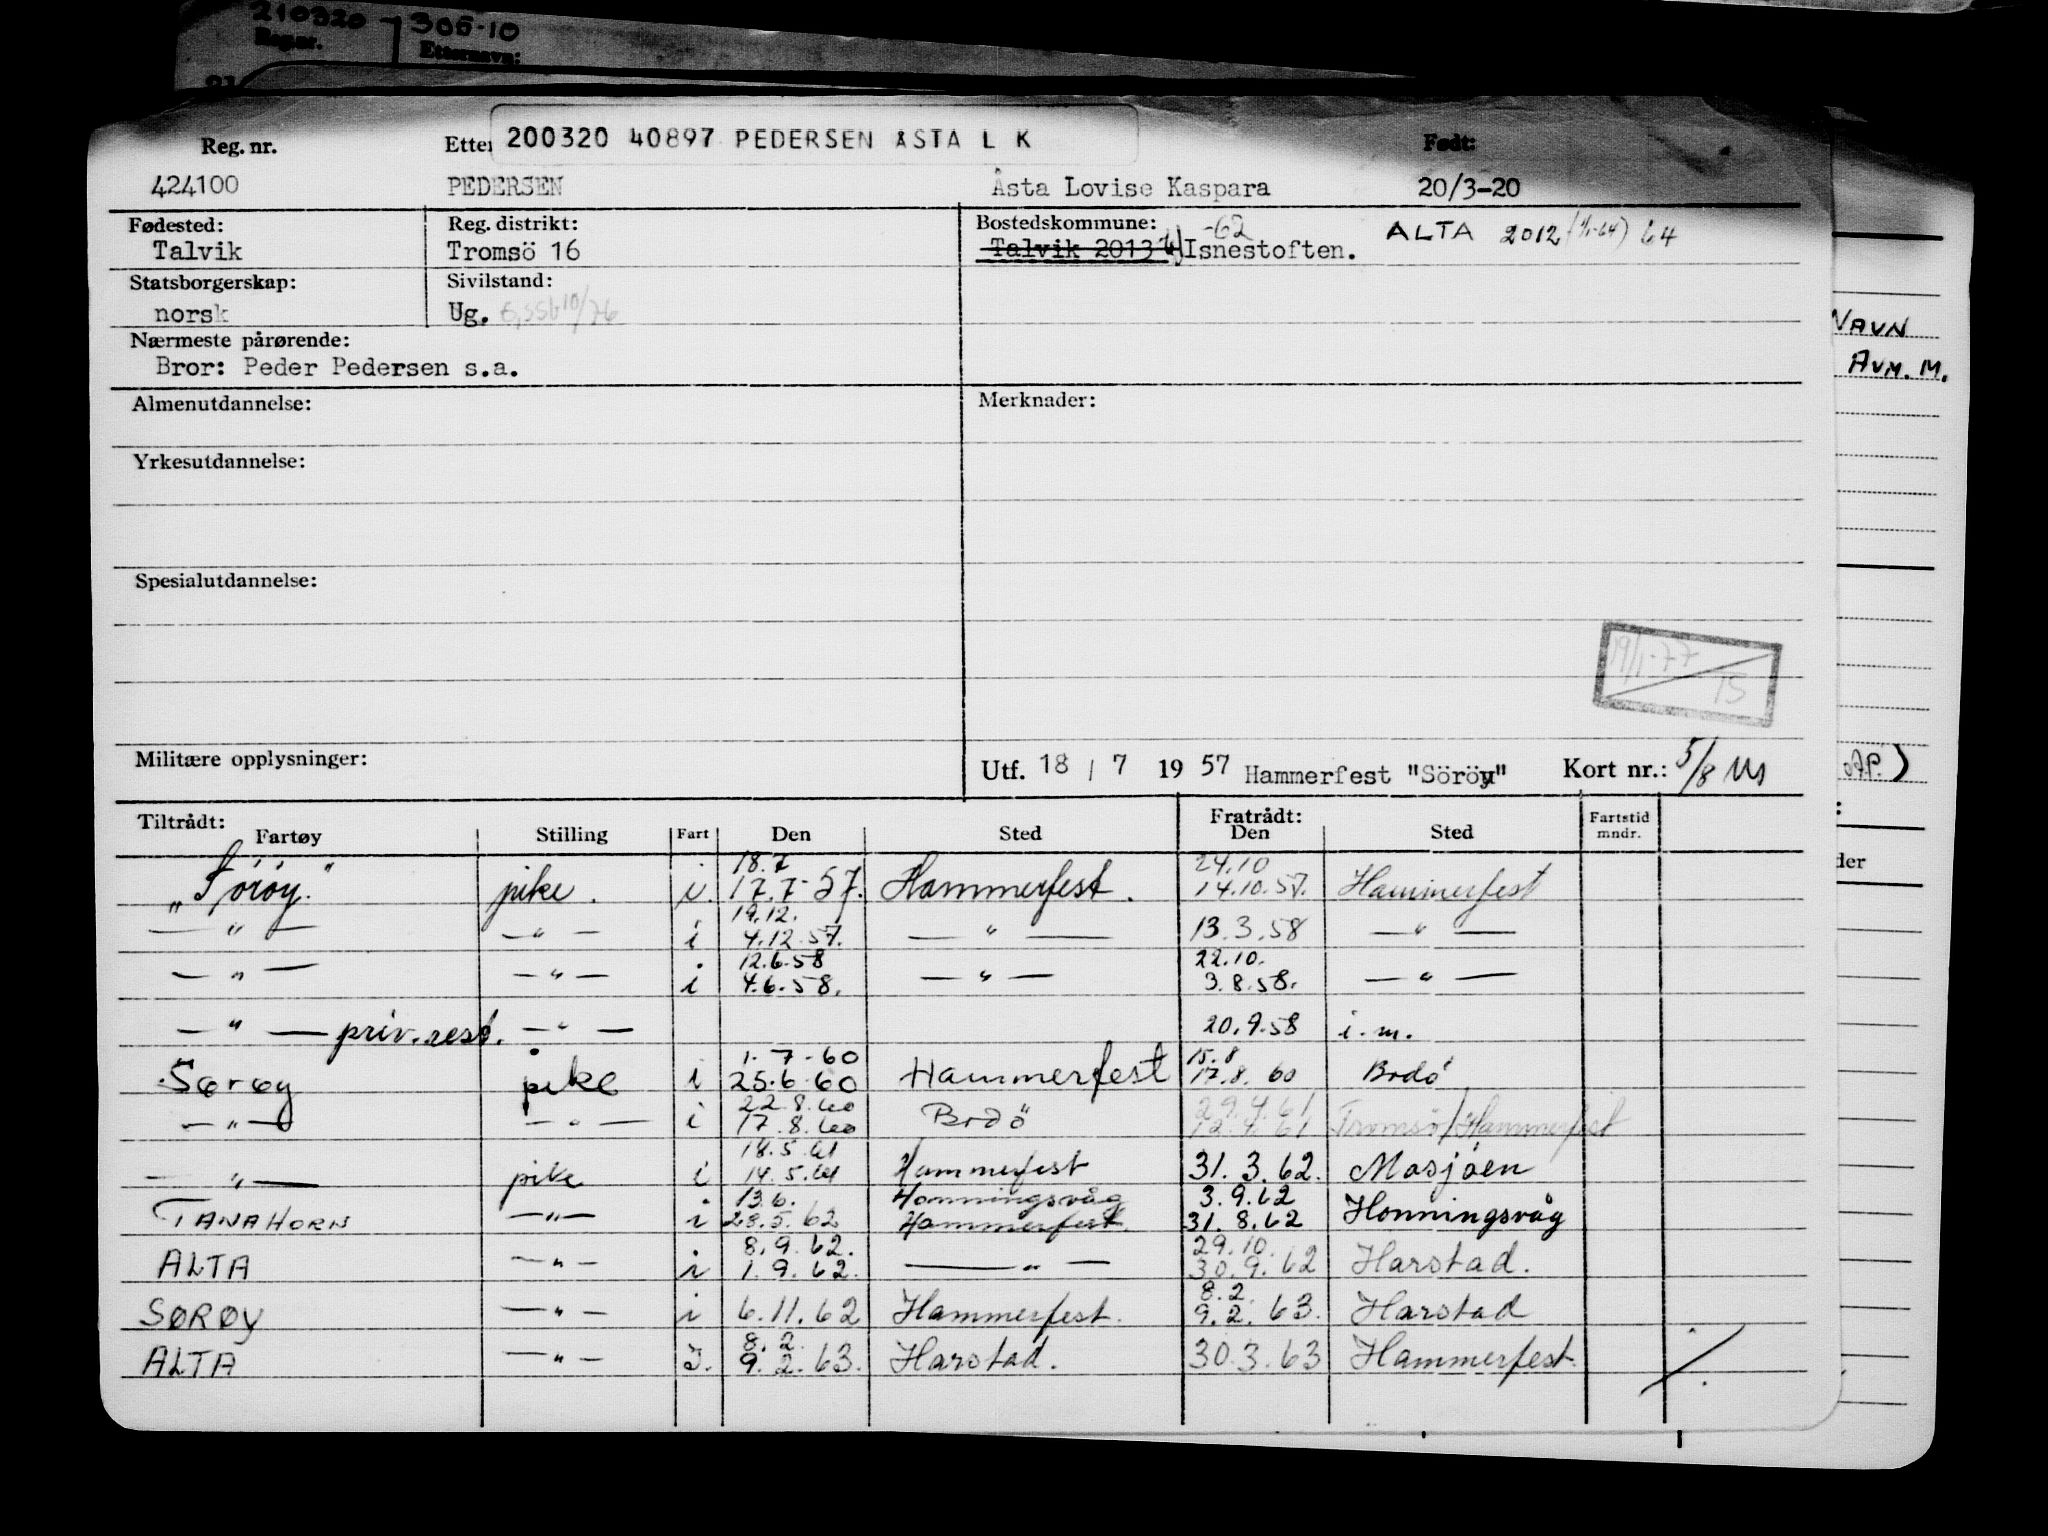 210320 305-10
Reg.nr. Etternavn:
Reg. nr. Etter 200320 40897 PEDERSEN ÅSTA L K Født:
424100 PEDERSEN Åsta Lovise Kaspara 20/3-20
Fødested: Reg. distrikt: Bostedskommune: -62
Talvik Tromsö 16 Talvik 2013 Isnestoften. ALTA 2012 (1/1-64) 64
Statsborgerskap: Sivilstand:
norsk Ug.
Nærmeste pårørende:
Bror: Peder Pedersen s.a.
Almenutdannelse: Merknader:
Yrkesutdannelse:
Spesialutdannelse:
19/1-77
15
Militære opplysninger: Utf. 18 / 7 19 57 Hammerfest "Söröy" Kort nr.: 5/8
Tiltrådt: Fratrådt: Fartstid
Fartøy Stilling Fart Den Sted Den Sted mndr.
18.7 24.10
"Sørøy." pike. i. 17.7-57. Hammerfest. 14.10.57. Hammerfest
19.12.
— " — — " — i 4.12.57. — " — 13.3.58 — " —
12.6.58 22.10.
— " — — " — i 4.6.58. — " — 3.8.58. — " —
— " — priv.rest. — " — 20.9.58 i.m.
1-7-60 15.8
Sørøy pike i 25.6.60 Hammerfest 17.8.60 Bodö
22.8.60 29.4.61
— " — — " — i 17.8.60 Bodö 12.4.61 Tromsø/Hammerfest
18.5.61
— " — pike i 14.5.61 Hammerfest 31.3.62. Mosjøen
13.6. Honningsvåg 3.9.62
TANAHORN — " — i 28.5.62 Hammerfest 31.8.62 Honningsvåg
8.9.62. 29.10.
ALTA — " — i 1.9.62. — " — 30.9.62 Harstad.
8.2.
SØRØY — " — i 6.11.62 Hammerfest. 9.2.63. Harstad
8.2.
ALTA — " — I. 9.2.63. Harstad. 30.3.63 Hammerfest.
NAVN
AVM. M.